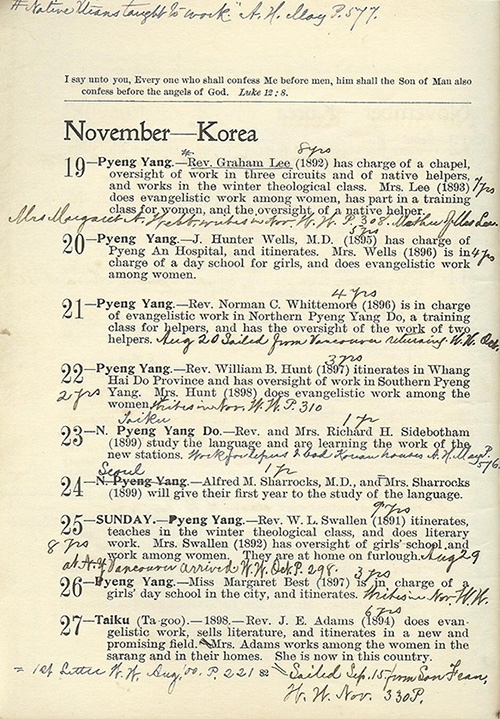 "Native Xians taught to work" A. H. May P. 577.
I say unto you, Every one who shall confess Me before men, him shall the Son of Man also
confess before the angels of God. Luke 12 : 8.
November—Korea
8 yrs
19—Pyeng Yang.—Rev. Graham Lee (1892) has charge of a chapel,
oversight of work in three circuits and of native helpers,
and works in the winter theological class. Mrs. Lee (1893) 7 yrs
does evangelistic work among women, has part in a training
class for women, and the oversight of a native helper.
Mrs Margaret A. Webb writes in Nov. W. W. P. 308. Mother of Mrs Lee.
5 yrs
20—Pyeng Yang.—J. Hunter Wells, M.D. (1895) has charge of
Pyeng An Hospital, and itinerates. Mrs. Wells (1896) is in 4 yrs
charge of a day school for girls, and does evangelistic work
among women.
4 yrs
21—Pyeng Yang.—Rev. Norman C. Whittemore (1896) is in charge
of evangelistic work in Northern Pyeng Yang Do, a training
class for helpers, and has the oversight of the work of two
helpers. Aug 20 Sailed from Vancouver returning W. W. Oct.
3 yrs
22—Pyeng Yang.—Rev. William B. Hunt (1897) itinerates in Whang
Hai Do Province and has oversight of work in Southern Pyeng
2 yrs Yang. Mrs. Hunt (1898) does evangelistic work among the
women. Writes in Nov. W. W. P. 310
Taiku 1 yr
23—N. Pyeng Yang Do.—Rev. and Mrs. Richard H. Sidebotham
(1899) study the language and are learning the work of the
new stations. Work for lepers & bad Korean houses A. H. May P. 576.
Seoul 1 yr
24—N. Pyeng Yang.—Alfred M. Sharrocks, M.D., and Mrs. Sharrocks
(1899) will give their first year to the study of the language.
9 yrs
25—SUNDAY. —Pyeng Yang.—Rev. W. L. Swallen (1891) itinerates,
teaches in the winter theological class, and does literary
8 yrs work. Mrs. Swallen (1892) has oversight of girls' school and
work among women. They are at home on furlough. Aug 29
at Vancouver arrived W. W. Oct. P. 298.
3 yrs
26—Pyeng Yang.—Miss Margaret Best (1897) is in charge of a
girls' day school in the city, and itinerates. Writes in Nov. W. W.
6 yrs
27—Taiku (Ta-goo).—1898.—Rev. J. E. Adams (1894) does evan-
gelistic work, sells literature, and itinerates in a new and
promising field. Mrs. Adams works among the women in the
sarang and in their homes. She is now in this country.
= 1st Letter W. W. Aug. '00. P. 221 Sailed Sep. 15 from San Fran,
W. W. Nov. 330 P.